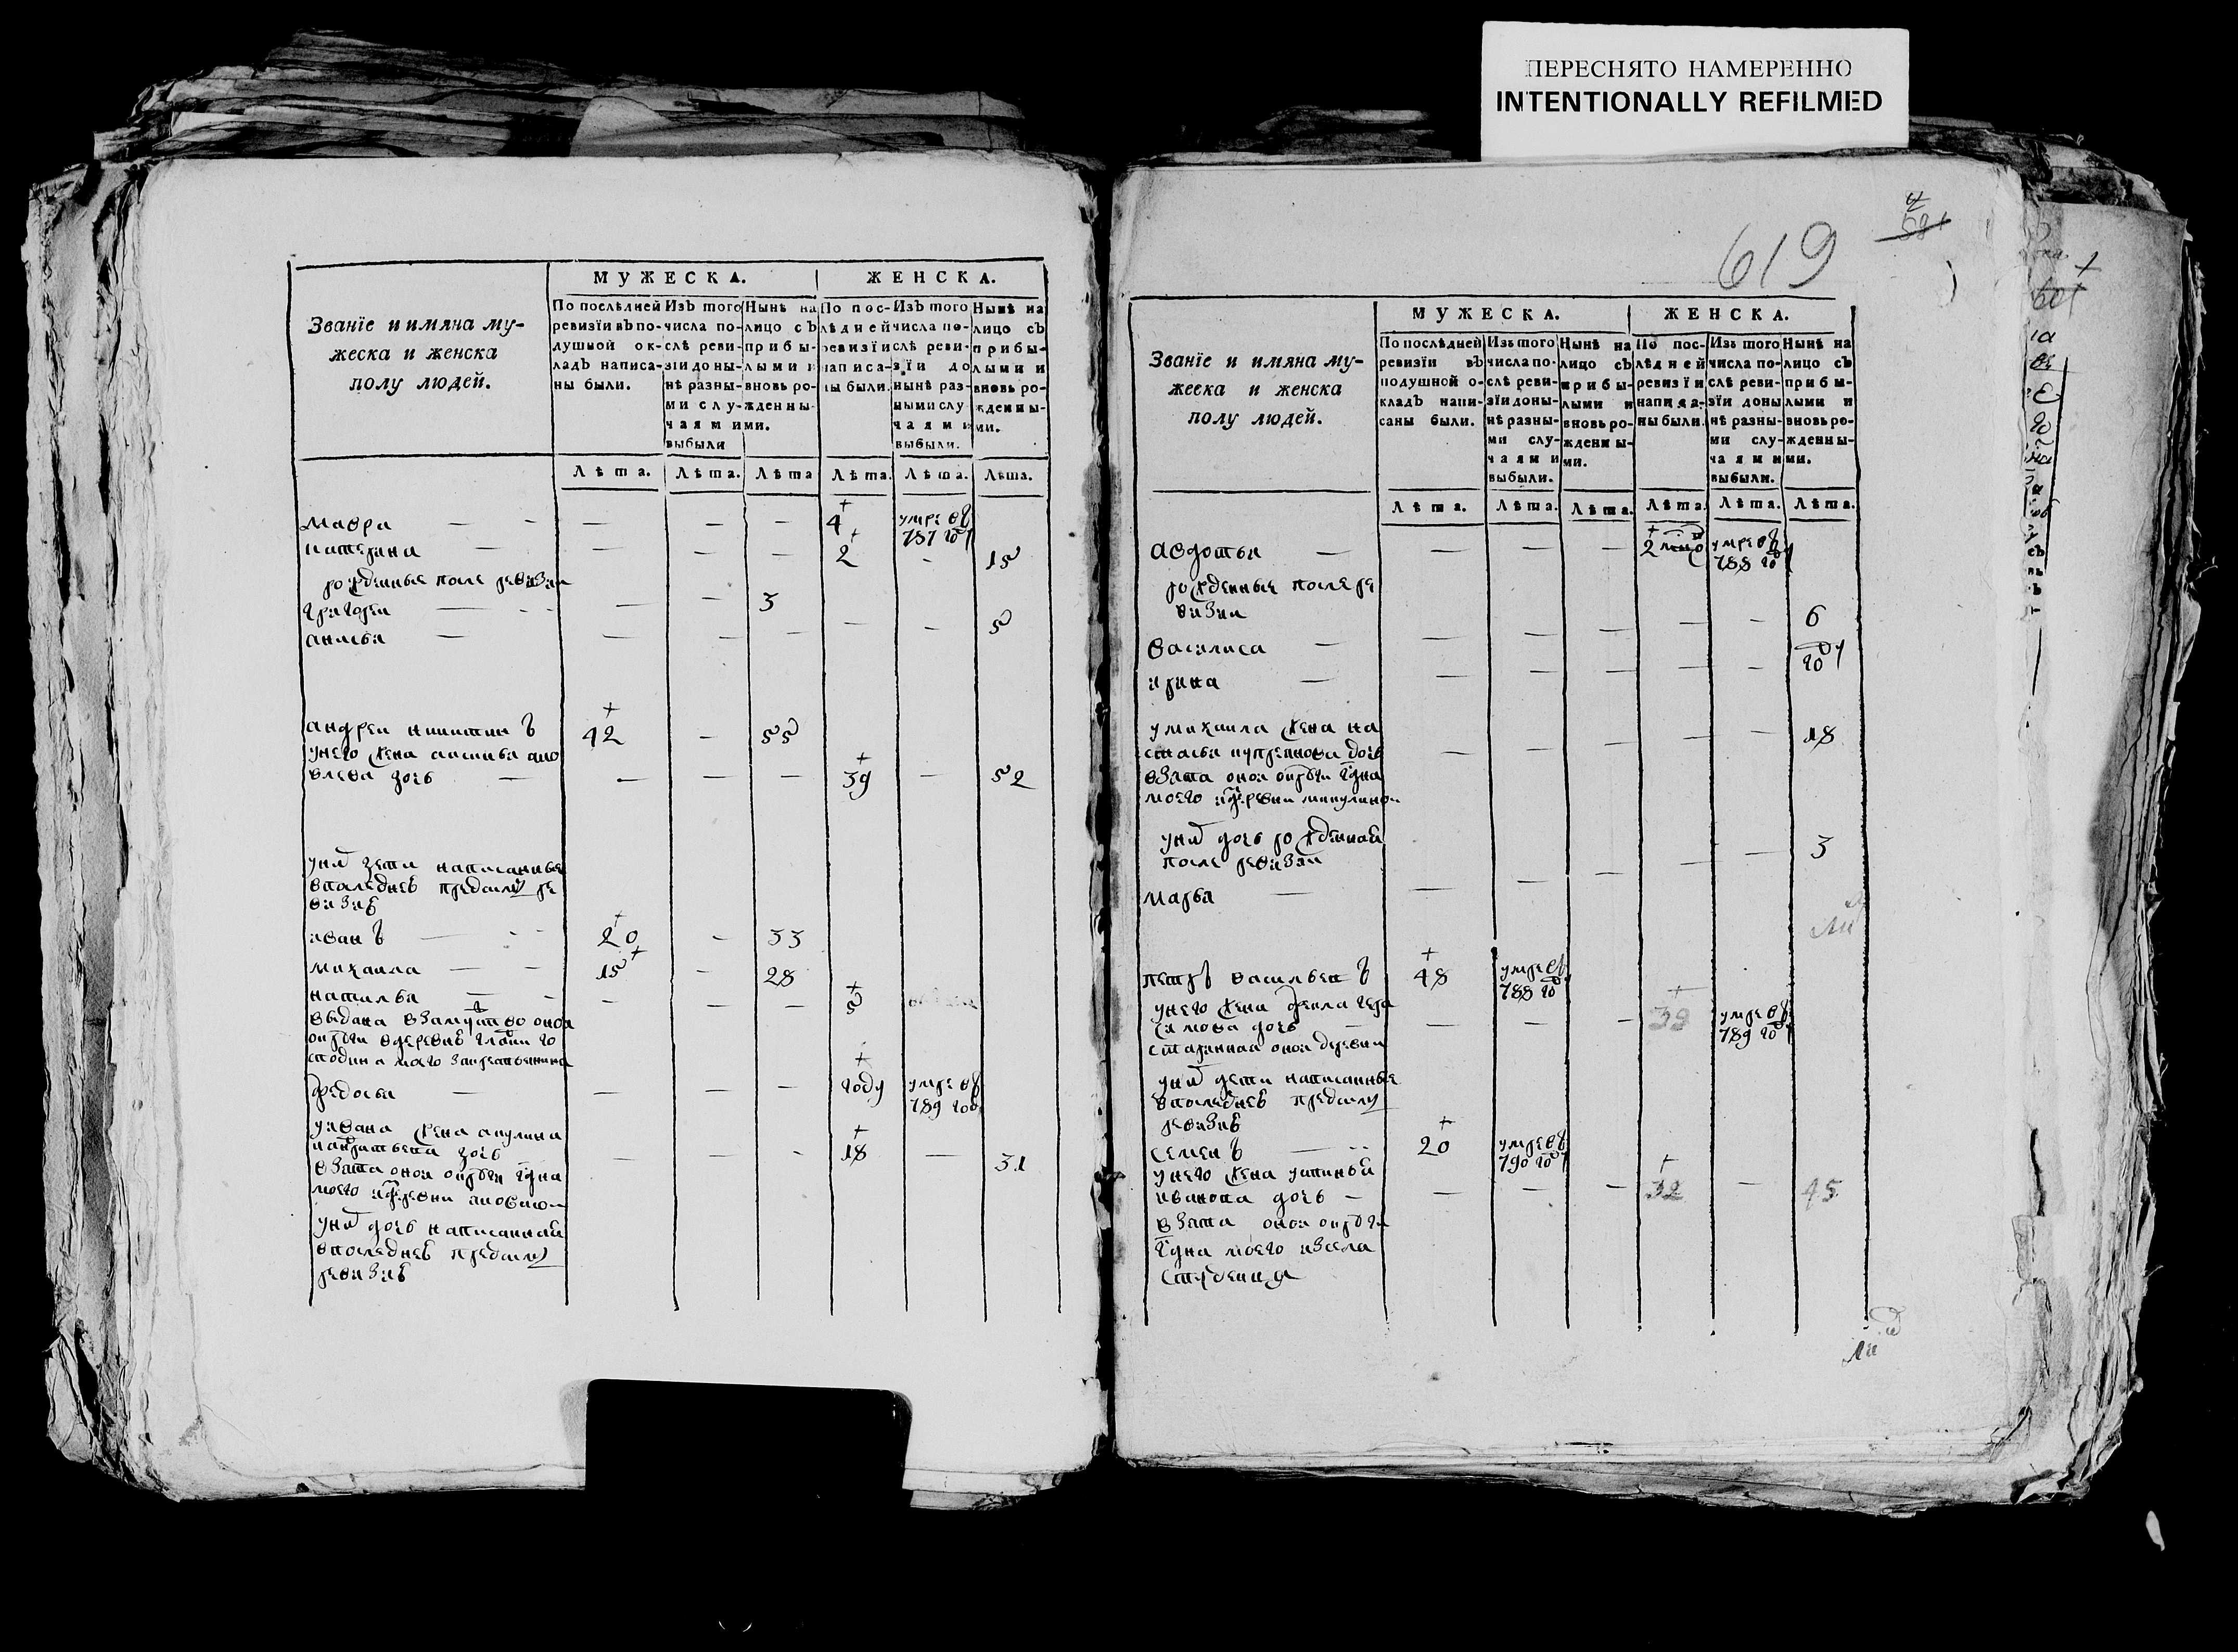 ПЕРЕСНЯТО НАМЕРЕННО
INTENTIONALLY REFILMED
Званїе и имяна му-
жеска и женска
полу людей.
МУЖЕСКА.
ЖЕНСКА.
По послѣдней
ревизїи въ по-
душной ок-
ладъ написа-
ны были.
Изъ того
числа по-
слѣ реви-
зїи доны-
нѣ разны-
ми слу-
чаями
выбыли
Нынѣ на
лицо съ
прибы-
лыми и
вновь ро-
жденны-
ми.
По пос-
лѣдней
ревизїи
написа-
ны были.
Изъ того
числа по-
слѣ реви-
зїи до
нынѣ раз-
ными слу
чаями
выбыли.
Нынѣ на
лицо съ
прибы-
лыми и
вновь ро-
жденны-
ми.
Лѣта. Лѣта. Лѣта Лѣта. Лѣта. Лѣта.
мавра — - — - - 4 умре въ 787 году
катерина — — - - 2 - 15
рожденные после ревизии
григореи — - - — - 3
анисья — — - - — - 5
андреи никитинъ 42 - 55
у него жена аксинья яко
влева дочь — — — — 39 — 52
у них дети написанные
в последней пред сим ре
визиѣ
иванъ — - - 20 - 33
михаила — — 15 - 28
наталья — - - - — 5
выдана в замужство оной
округи в деревнѣ
моего за крестьянина
федосья — — — - году умре въ 789 году
у ивана жена акулина
кондратьева дочь — - - 18 — 31
взята оной округи гдна
моего из деревни
у них дочь написанная
в последней пред сим
ревизиѣ
619
Званїе и имяна му-
жеска и женска
полу людей.
МУЖЕСКА.
ЖЕНСКА.
По послѣдней
ревизїи въ
подушной о-
кладъ напи-
саны были.
Изъ того
числа по-
слѣ реви-
зїи доны-
нѣ разны-
ми слу-
чаями
выбыли.
Нынѣ на
лицо съ
прибы-
лыми и
вновь ро-
жденны-
ми.
По пос-
лѣдней
ревизїи
написа-
ны были.
Изъ того
числа по-
слѣ реви-
зїи доны
нѣ разны-
ми слу-
чаями
выбыли.
Нынѣ на
лицо съ
прибы-
лыми и
вновь ро-
жденны-
ми.
Лѣта. Лѣта. Лѣта. Лѣта. Лѣта. Лѣта.
авдотья — — — — 2 умре въ 788 году
рожденные после ре
визии
василиса — — — — — - 6
ирина — — — — — - году
у михаила жена на
стасья дочь — — — — - 18
взята оной округи гдна
моего из деревни микулиной
у них дочь рожденная
после ревизии
марья — — — — — — 3
петръ васильевъ 48 умре въ 788 году
у него жена фекла гера
симова дочь — — — - 39 умре въ 789 году
старинная оной деревни
у них дети написанные
в последней пред сим
ревизиѣ
семенъ — - - 20 умре въ 790 году
у него жена устинья
иванова дочь - — — - 32 — 45
взята оной округи
гдна моего из села
студенца